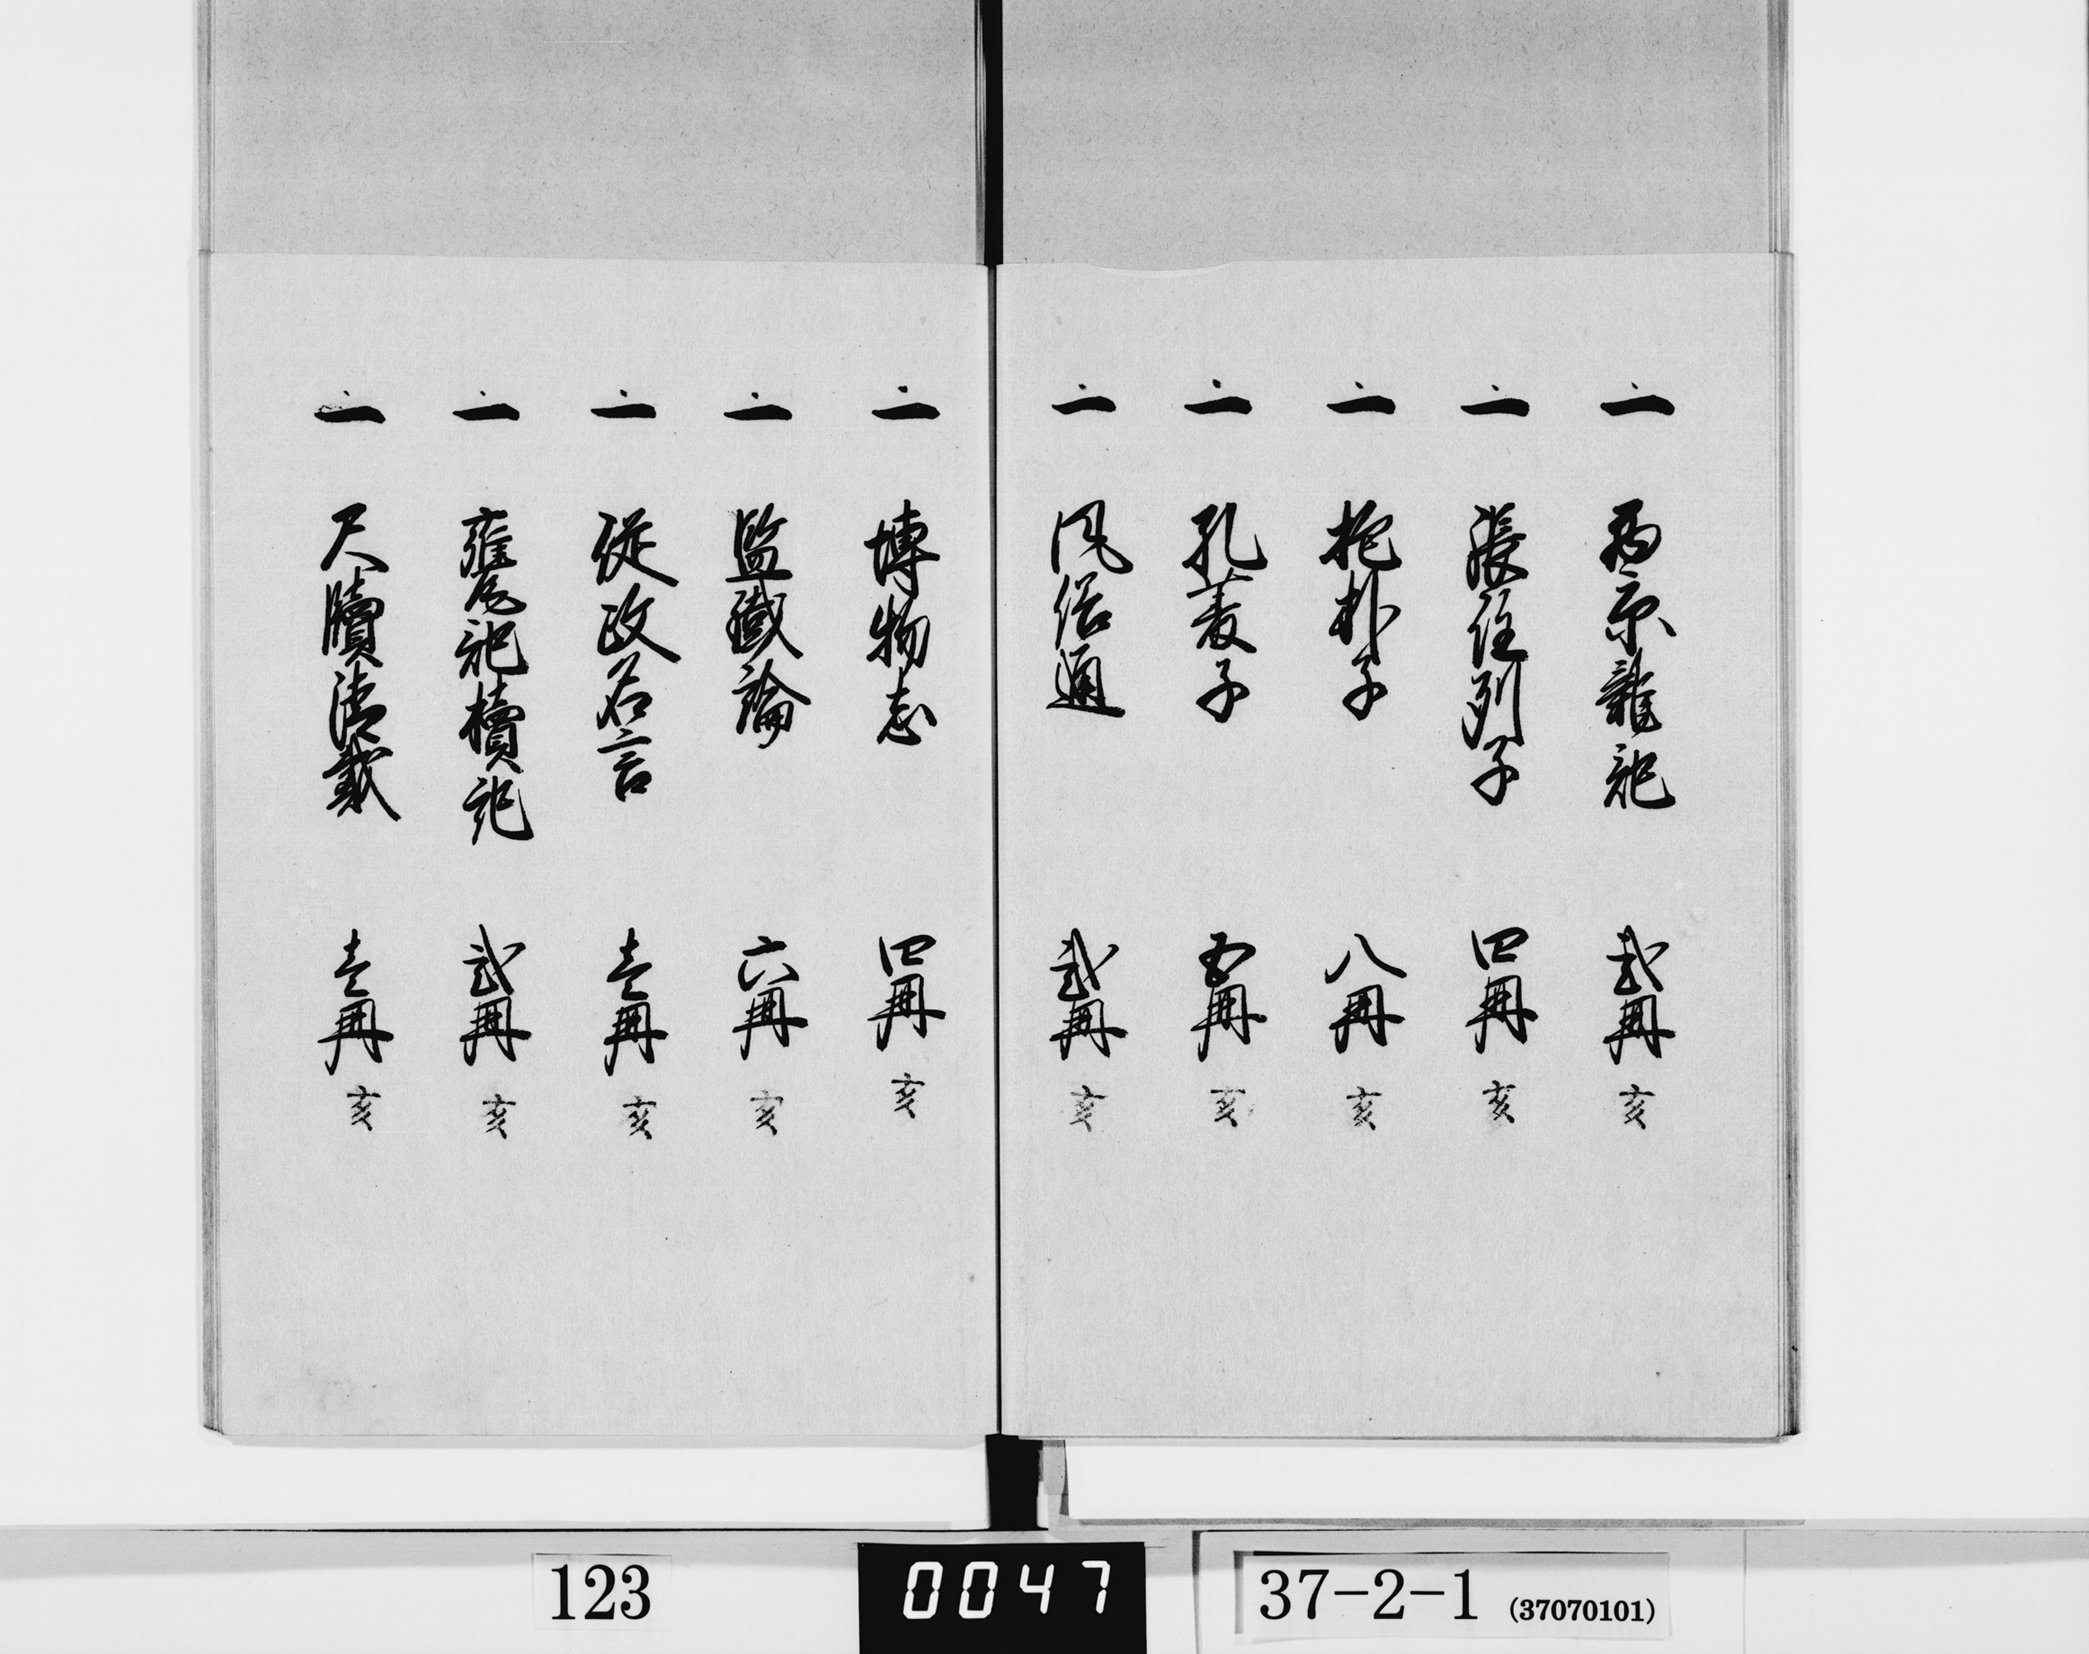 一 西京雜記 弐冊 亥
一 張注列子 四冊 亥
一 抱朴子 八冊 亥
一 孔叢子 五冊 亥
一 風俗通 弐冊 亥
一 博物志 四冊 亥
一 監鐵論 六冊 亥
一 従政名言 壱冊 亥
一 甕記櫝記 弐冊 亥
一 尺牘清裁 壱冊 亥
123
0047
37-2-1 (37070101)